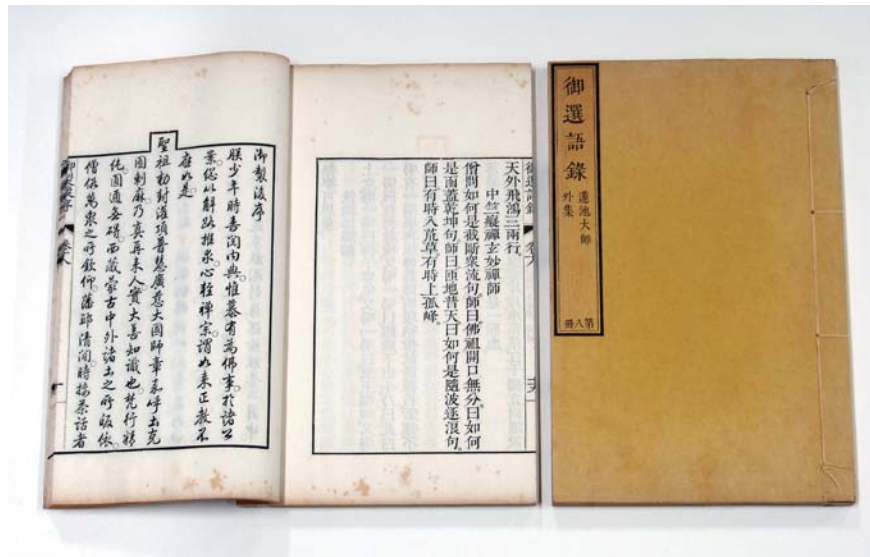 御選語錄
蓮池大師
外集
第八冊
御選語錄
天外飛鴻三兩行。
中竺癡禪玄妙禪師
僧問如何是截斷衆流句。師曰佛祖開口無分。曰如何
是函蓋乾坤句。師曰匝地普天。曰如何是隨波逐浪句。
師曰有時入荒草。有時上孤峰。
御製後序
朕少年時喜閱內典惟慕有為佛事。於諸公
案總以解路推求。心輕禪宗。謂如來正教不
應如是。
聖祖勑封灌頂普慧廣慈大國師章嘉呼土克
圖剌麻。乃真再來人。實大善知識也。梵行精
純。圓通無礙。西藏蒙古中外諸土之所皈依。
僧俗萬衆之所欽仰。藩邸清閒。時接茶話者